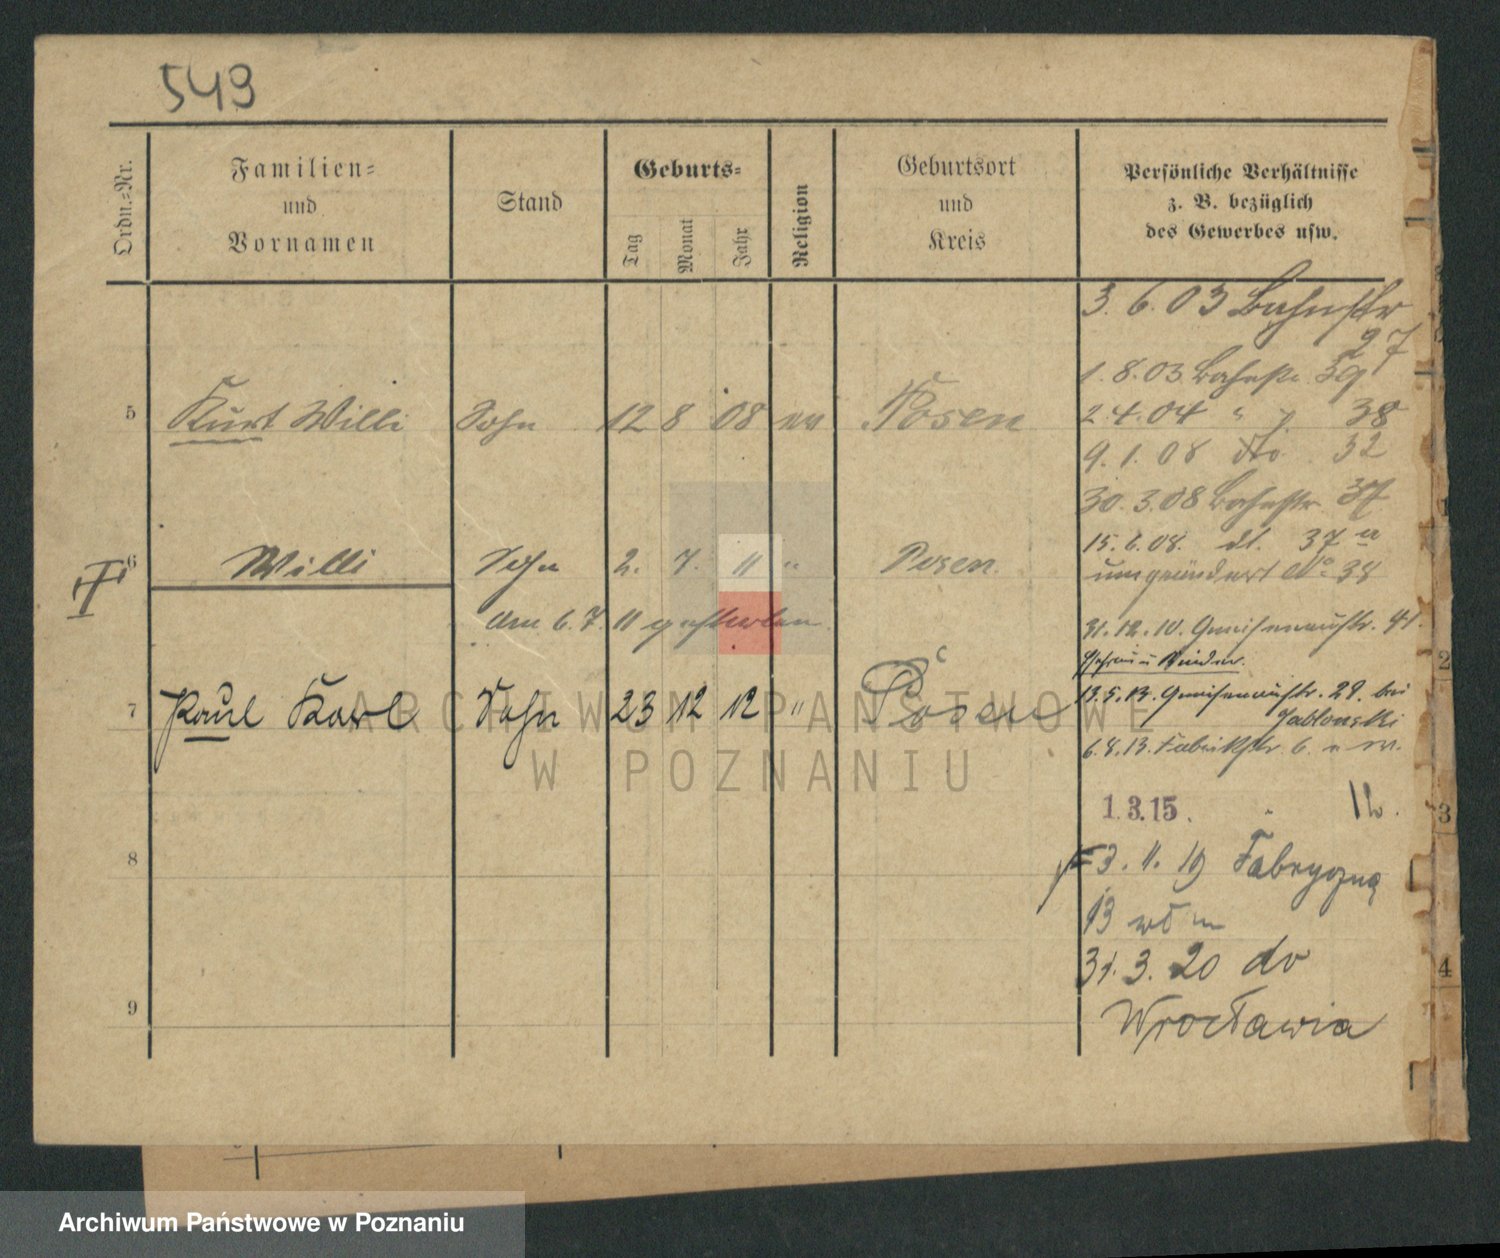 549
Ordn.-Nr.
Familien-
und
Vornamen
Stand
Geburts-
Tag
Monat
Jahr
Religion
Geburtsort
und
Kreis
Persönliche Verhältnisse
z. B. bezüglich
des Gewerbes usw.
3. 6. 03 Bahnstr
27
1. 8. 03 Bahnstr. 39
5 Kurt Willi Sohn 12 8 08 ev Posen
2. 4. 04 " " 38
9. 1. 08 dto 32
30. 3. 08 Bahnstr. 37
15. 6. 08. dt. 37 a
6 Willi Sohn 2. 7. 11 " Posen.
umgeändert No 38
am 6. 7. 11 gestorben
31. 12. 10. Gneisenaustr. 41.
Ehefrau u Kinder.
7 Paul Karl Sohn 23 12 12 " Posen
13. 5. 13. Gneisenaustr. 29. bei
Jablonski
6. 8. 13. Fabrikstr. 6.
1. 3. 15. " 12.
8
3. 11. 19 Fabryczną
13
31. 3. 20 do
9
Wrocławia
1
2
3
4
ARCHIWUM PAŃSTWOWE
W POZNANIU
Archiwum Państwowe w Poznaniu